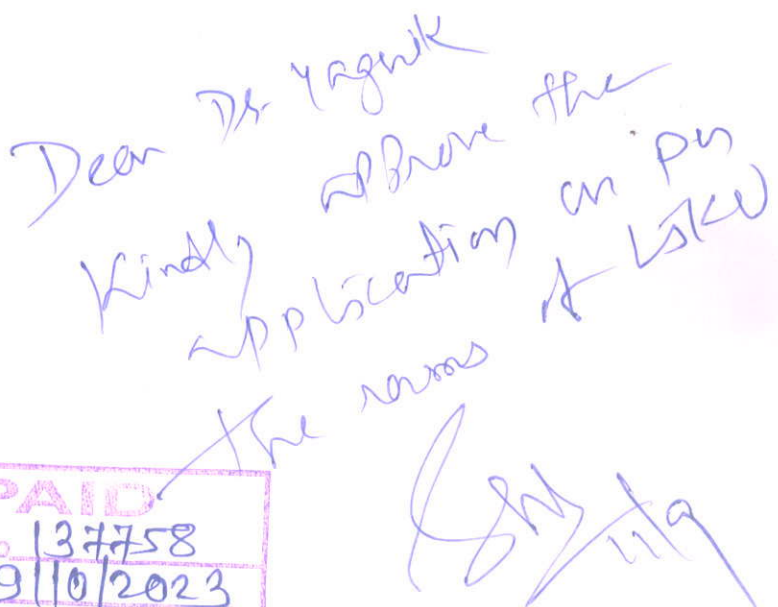 Dear Dr. Yagnik
Kindly approve the
application as per
the norms of LSKU
PAID
137758
9/10/2023